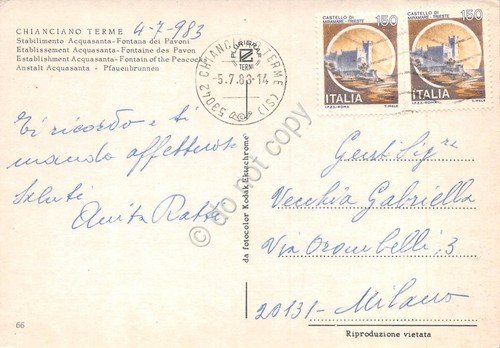 CHIANCIANO TERME 4-7-983
Stabilimento Acquasanta - Fontana dei Pavoni
Etablissement Acquasanta - Fontaine des Pavon
Establishment Acquasanta - Fountain of the Peacock
Anstalt Acquasanta - Pfauenbrunnen
53042 CHIANCIANO TERME (SI)
TERMI
-5.7.83-14
CASTELLO DI
MIRAMARE - TRIESTE
150
ITALIA
I.P.Z.S. - ROMA T. MELE
CASTELLO DI
MIRAMARE - TRIESTE
150
ITALIA
I.P.Z.S. - ROMA T. MELE
Ti ricordo e ti
mando affettuosi
saluti
Anita
da fotocolor Kodak Ektachrome
Gent. Sig.ra
Vecchia Gabriella
Via Orombelli, 3
20131 - Milano
66
Riproduzione vietata
© do not copy